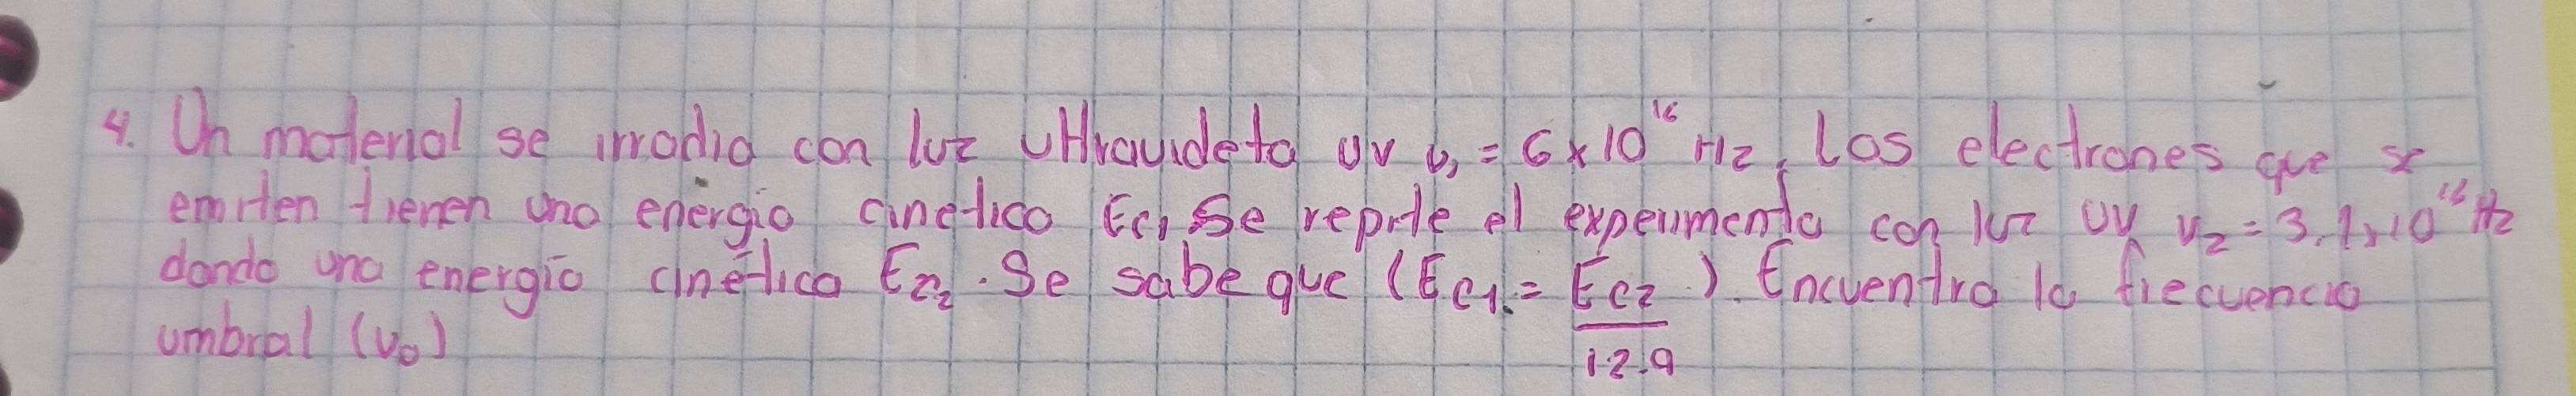 4. Un material se irradia con luz ultravideta uv υ₁ = 6x10¹⁶ Hz, Los electrones que se
emiten tienen una energia cinetica Ec₁ Se repite el experimento con luz uv υ₂ = 3.1x10¹⁶ Hz
dando una energia cinética Ec₂. Se sabe que (Ec1. = Ec2 / 12.9). Encuentra la frecuencia
umbral (υ₀)